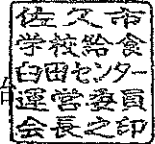 佐久市
学校給食
臼田センター
運営委員
会長之印